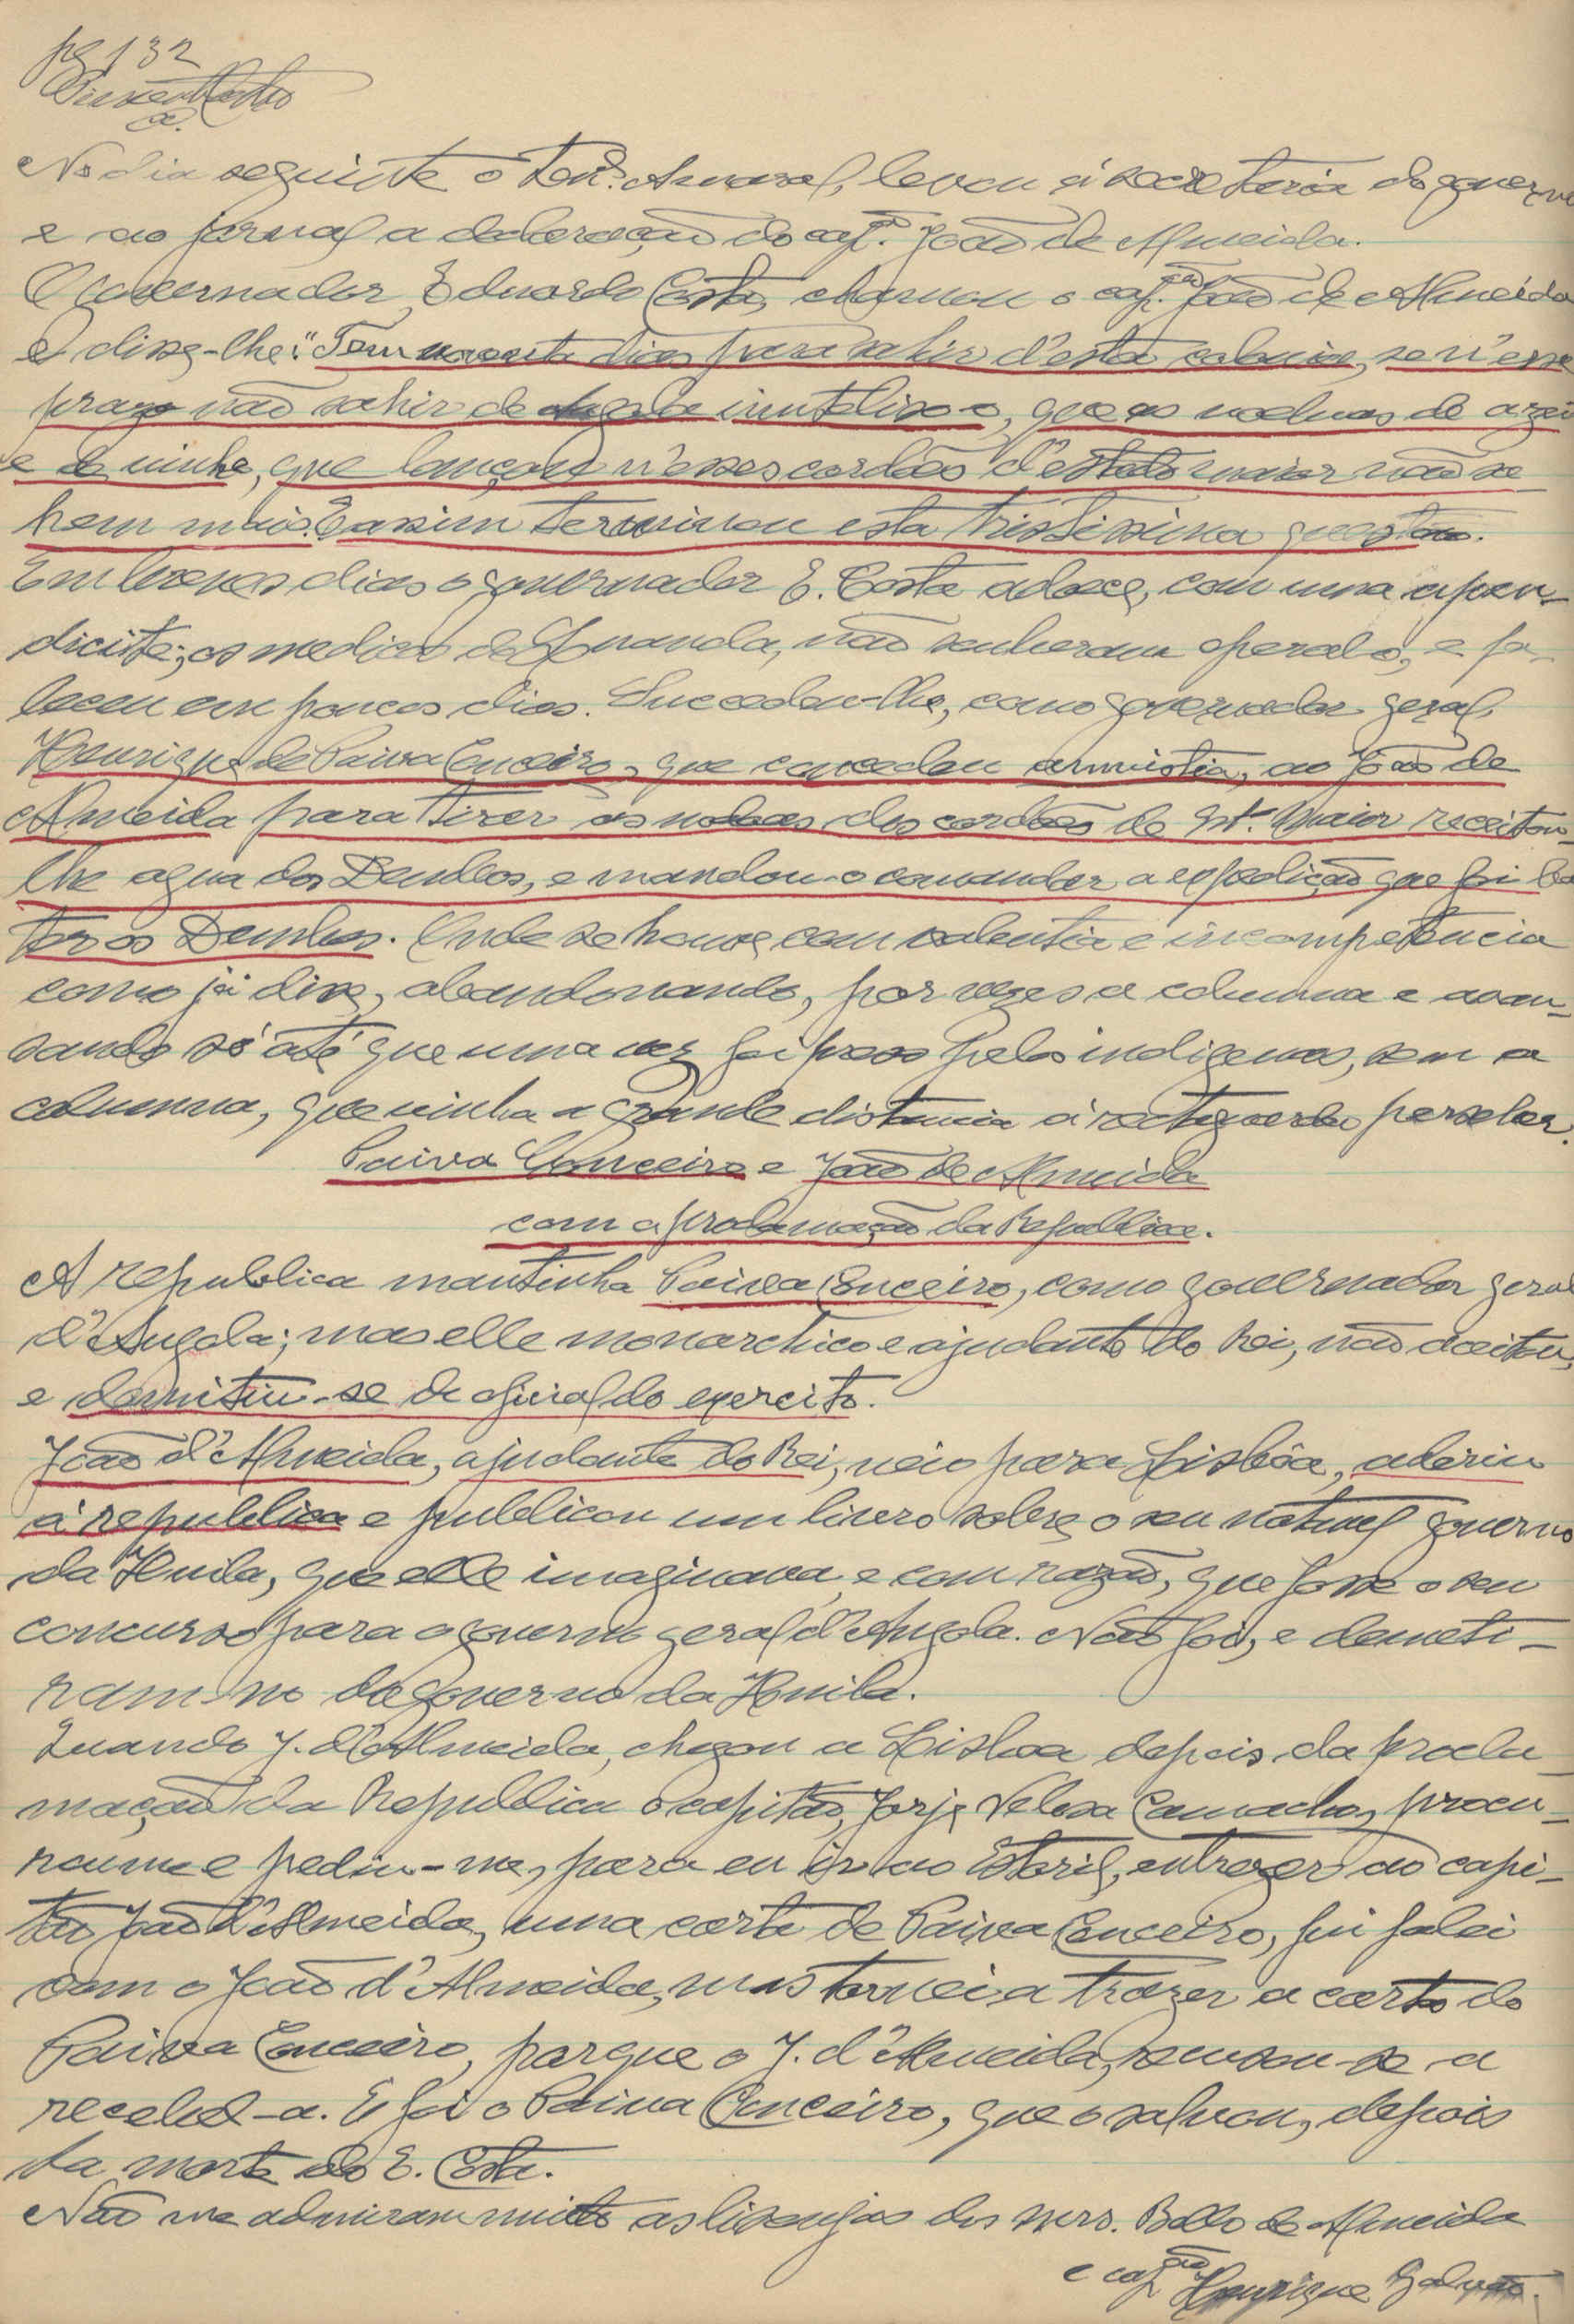 pg 132
No dia seguinte o Ten.e Amaral, levou á secretaria do governo
e ao jornal a declaração do cap.tão João de Almeida.
O governador, Eduardo Costa, chamou o cap.tão João de Almeida
e disse-lhe: "Tem noventa dias para sahir d'esta colonia, se n'esse
prazo não sahir de Angola inutiliso-o, que as nodoas de azei
e de vinho, que lançou n'esses cordões d'estado maior não sa
hem mais. E assim terminou esta tristissima questão.
Em breves dias o governador E. Costa adoece, com uma apen-
dicite; os medicos de Loanda, não souberam operal-o, e fa-
leceu em poucos dias. Succedeu-lhe, como governador geral,
Henrique de Paiva Couceiro, que concedeu amnistia, ao João de
Almeida para tirar as nodoas dos cordões do Est.º Maior receitou-
lhe agua dos Dembos, e mandou-o comandar a expedição que foi ba
ter os Dembos. Onde se houve com valentia e incompetencia
como já disse, abandonando, por vezes a columna e avan-
sando só até que uma vez foi preso pelos indigenas, sem a
columna, que vinha a grande distancia á rectaguarda perceber.
Paiva Couceiro e João de Almeida
com a proclamação da Republica.
A republica mantinha Paiva Couceiro, como governador geral
d'Angola; mas elle monarchico e ajudante do Rei, não aceitou,
e demitiu-se de oficial do exercito.
João d'Almeida, ajudante do Rei, veio para Lisbôa, aderiu
á republica e publicou um livero sobre o seu notavel governo
da Huila, que elle imaginava, e com razão, que fosse o seu
concurso para o governo geral d'Angola. Não foi, e demeti-
ram-no do governo da Huila.
Quando J. d'Almeida, chegou a Lisboa depois da procla-
mação da Republica o capitão, Jorje Velosa Camacho, procu-
roume e pediu-me, para eu ir ao Estoril, entregar ao capi-
tão João d'Almeida, uma carta de Paiva Couceiro, fui falei
com o João d'Almeida, mas tornei a trazer a carta do
Paiva Couceiro, porque o J. d'Almeida, recusou-se a
recebel-a. E foi o Paiva Couceiro, que o salvou, depois
da morte do E. Costa.
Não me admiram muito as lisonjas dos snrs. Bello de Almeida
e cap.tão Henrique Galvão.